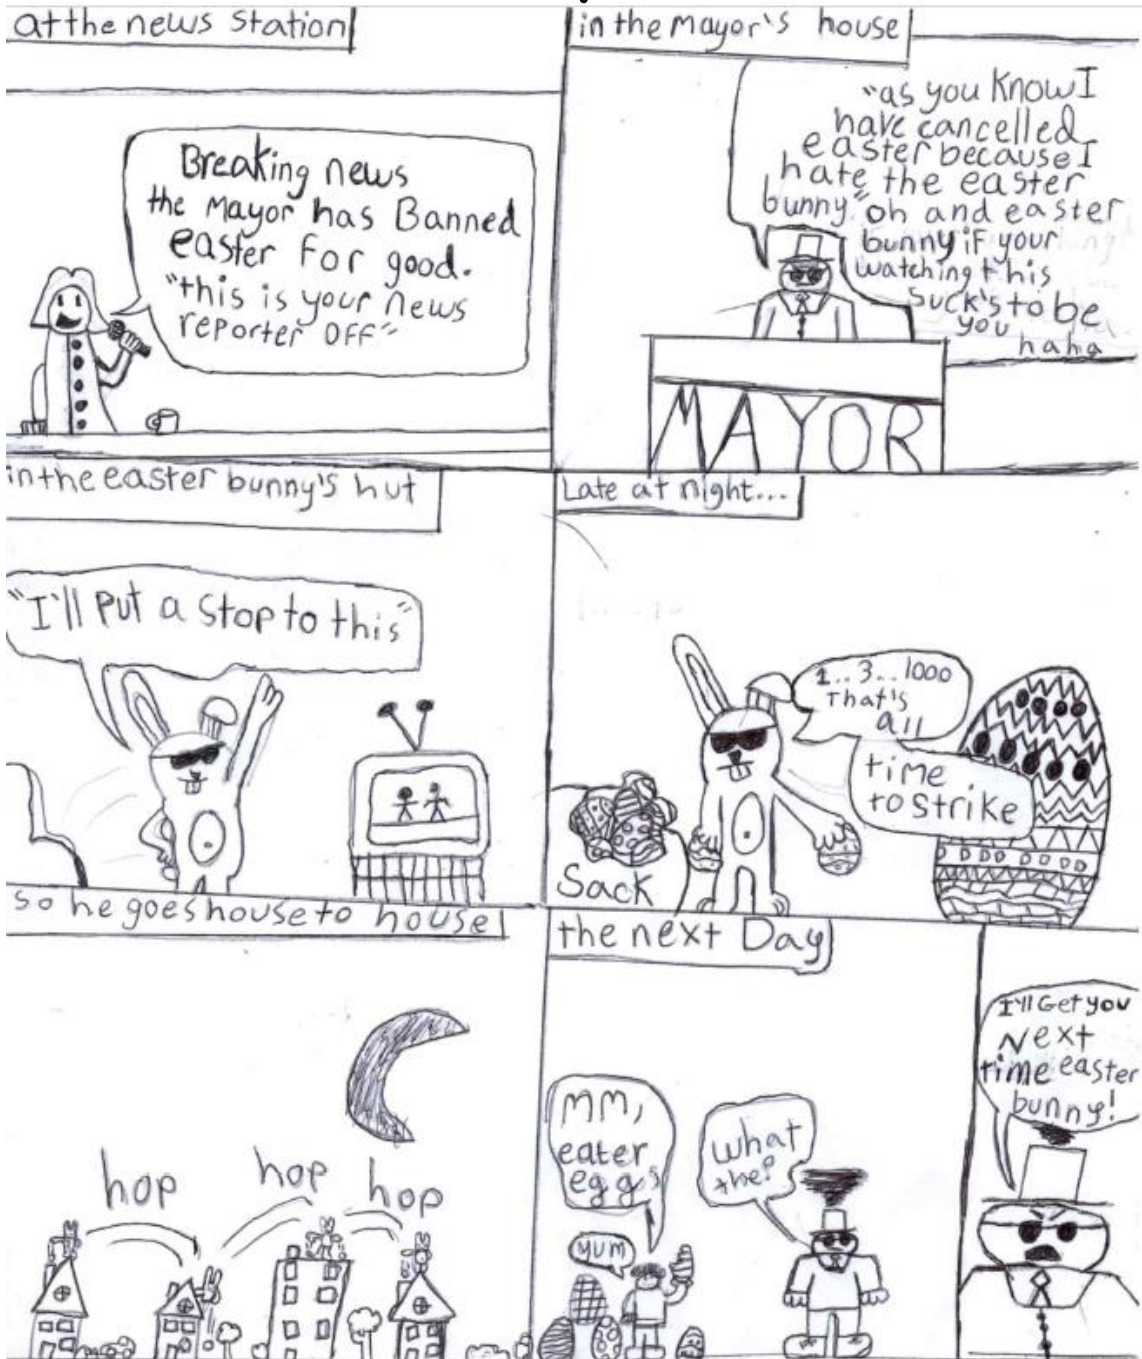 at the news station
Breaking news
the Mayor has Banned
easter for good.
"this is your news
reporter OFF"
in the Mayor's house
"as you know I
have cancelled
easter because I
hate the easter
bunny" oh and easter
bunny if your
watching this
suck's to be
you
haha
MAYOR
in the easter bunny's hut
"I'll put a stop to this"
Late at night...
1..3..1000
That's
all
time
to strike
Sack
so he goes house to house
hop
hop
hop
the next Day
MM,
eater
eggs
yum
what
the?
I'll Get you
Next
time easter
bunny!